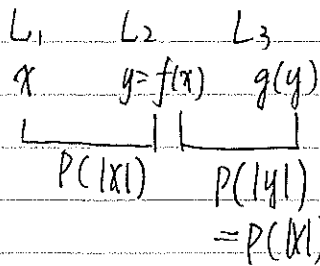 L₁ L₂ L₃
x y=f(x) g(y)
P(|x|) P(|y|)
=P(|x|)